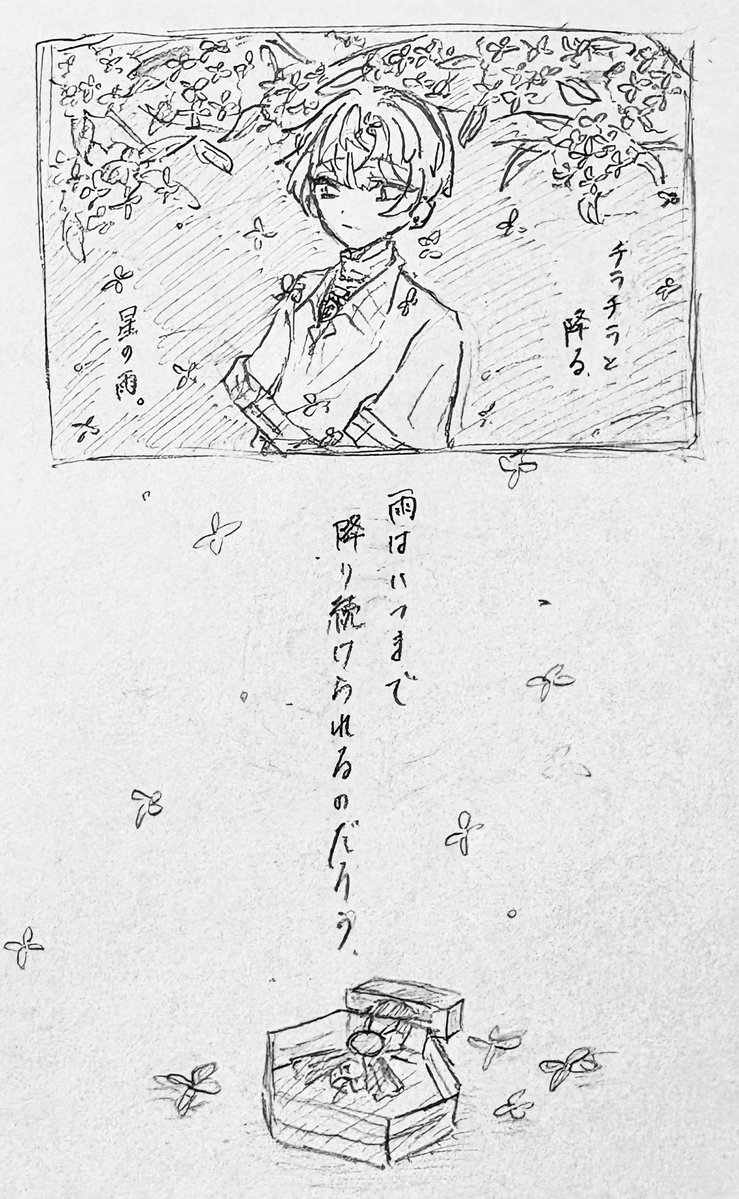 チラチラと
降る
星の雨。
雨はいつまで
降り続けられるのだろう、